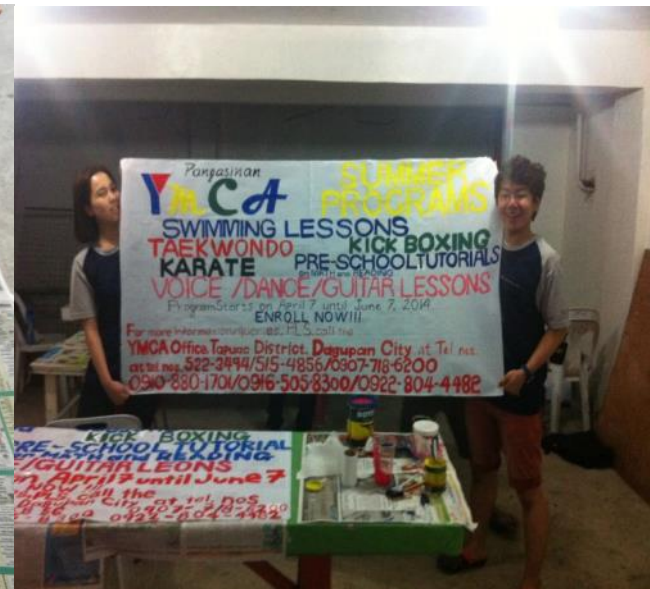 Pangasinan
YMCA SUMMER PROGRAMS
SWIMMING LESSONS
TAEKWONDO KICK BOXING
KARATE PRE-SCHOOL TUTORIALS
ON MATH and READING
VOICE /DANCE/GUITAR LESSONS
Program Starts on April 7 until June 7, 2014
ENROLL NOW!!!
For more PLS. call the
YMCA Office, Tapuac District, Dagupan City, at Tel nos.
at tel nos. 522-3494/515-4856/0907-718-6200
0910-880-1701/0916-505-8300/0922-804-4482
KICK BOXING
PRE-SCHOOL TUTORIAL
MATH and READING
E/GUITAR LEONS
on April 7 until June 7
call the
City at tel nos
0922-804-4482